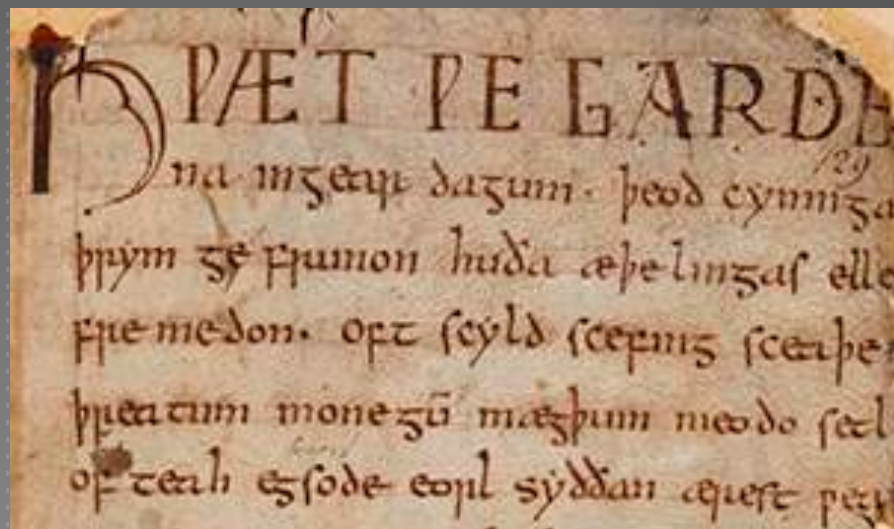 HǷÆT ǷE GARDE
129
na ingear dagum. þeod cyninga
þrym ge frunon huða æþelingas elle
fremedon. oft scyld scefing sceaþe
þreatum monegū mægþum meodo setl
of teah egsode eorl syððan ærest ƿear